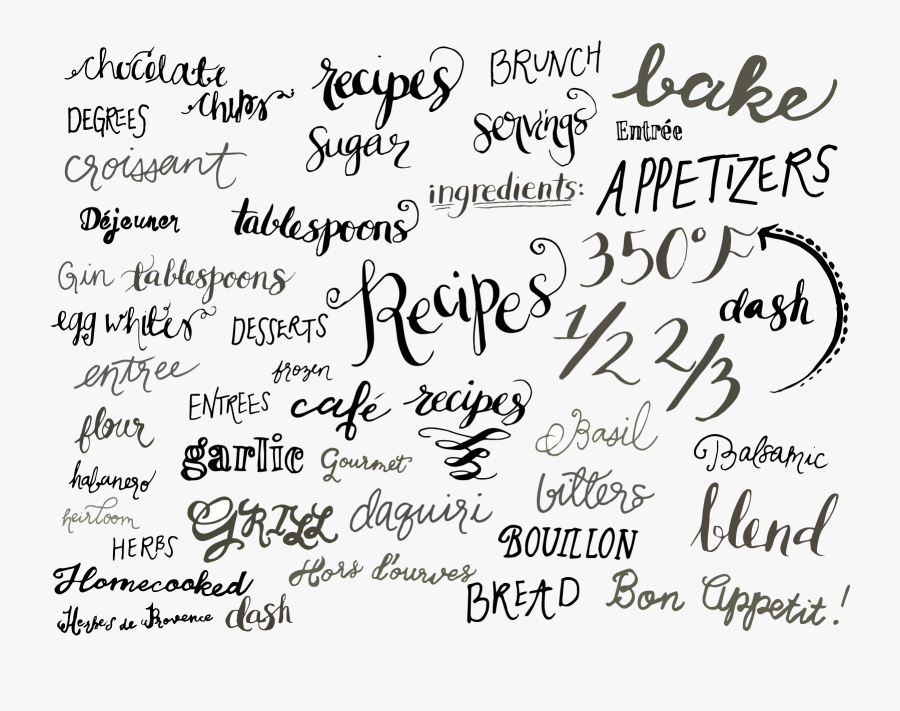 chocolate chips
recipes
BRUNCH
bake
DEGREES
servings
Entrée
sugar
croissant
ingredients:
APPETIZERS
Déjeuner
tablespoons
350°F
Gin tablespoons
Recipes
dash
egg whites
DESSERTS
1/2 2/3
entree
frozen
ENTREES
café recipes
flour
Basil
garlic
Gourmet
Balsamic
habanero
bitters
heirloom
GRILL
daquiri
blend
HERBS
BOUILLON
Homecooked
Hors d'ourves
BREAD
Bon Appetit!
Herbes de Provence
dash